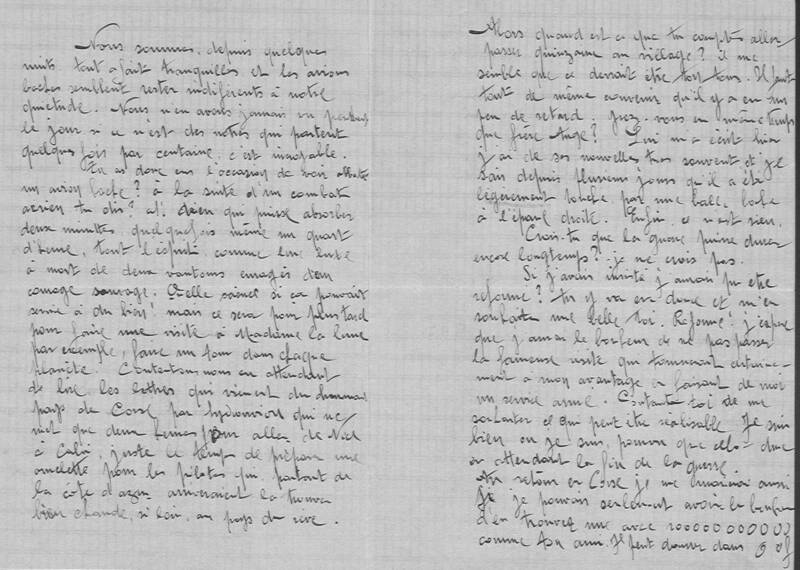 Nous sommes, depuis quelques
nuits tout à fait tranquilles et les avions
boches semblent rester indifférents à notre
quiétude. Nous n'en avons jamais vu
le jour si ce n'est des notres qui partent
quelques fois par centaine, c'est incroyable.
Tu as donc eu l'occasion de voir abattre
un avion boche? à la suite d'un combat
aerien tu dis? ah! rien qui puisse absorber
deux minutes, quelquefois même un quart
d'heure, tout l'esprit, comme une lutte
à mort de deux vautours enragés d'un
courage sauvage. Quelle science si ça pouvait
servir à du bien! mais ce sera pour plus tard
pour faire une visite à Madame la lune
par exemple, faire un tour dans chaque
planète. Contentons nous en attendant
de lire, les lettres qui viennent du
pays de Corse par hydravion qui ne
met que deux heures pour aller de Nice
à Calvi, juste le temps de préparer une
omelette pour les pilotes qui, partant de
la côte d'azur arriveraient la trouver
bien chaude, si loin, au pays du rêve.
Alors quand est ce que tu comptes aller
passer quinzaine au village? il me
semble que ce devrait être ton tour. Il faut
tout de même convenir qu'il y a eu un
peu de retard. Irez-vous en même temps
que frère Ange? Lui m'a écrit hier
j'ai de ses nouvelles très souvent et je
sais depuis plusieurs jours qu'il a été
légèrement touché par une balle boche
à l'épaule droite. Enfin, ce n'est rien.
Crois-tu que la guerre puisse durer
encore longtemps? je ne crois pas.
Si j'avais insisté j'aurais pu être
reformé? tu y va en douce et m'en
souhaites une belle toi. Reformé! j'espère
que j'aurai le bonheur de ne pas passer
la fameuse visite qui tournerait
à mon avantage en faisant de moi
un service armé. Contente toi de me
souhaiter ce qui peut être réalisable. Je suis
bien ou je suis, pourvu que cela dure
en attendant la fin de la guerre.
Au retour en Corse je me marierai aussi
si je pouvais seulement avoir le bonheur
d'en trouver une avec
comme ton ami. Il peut danser dans